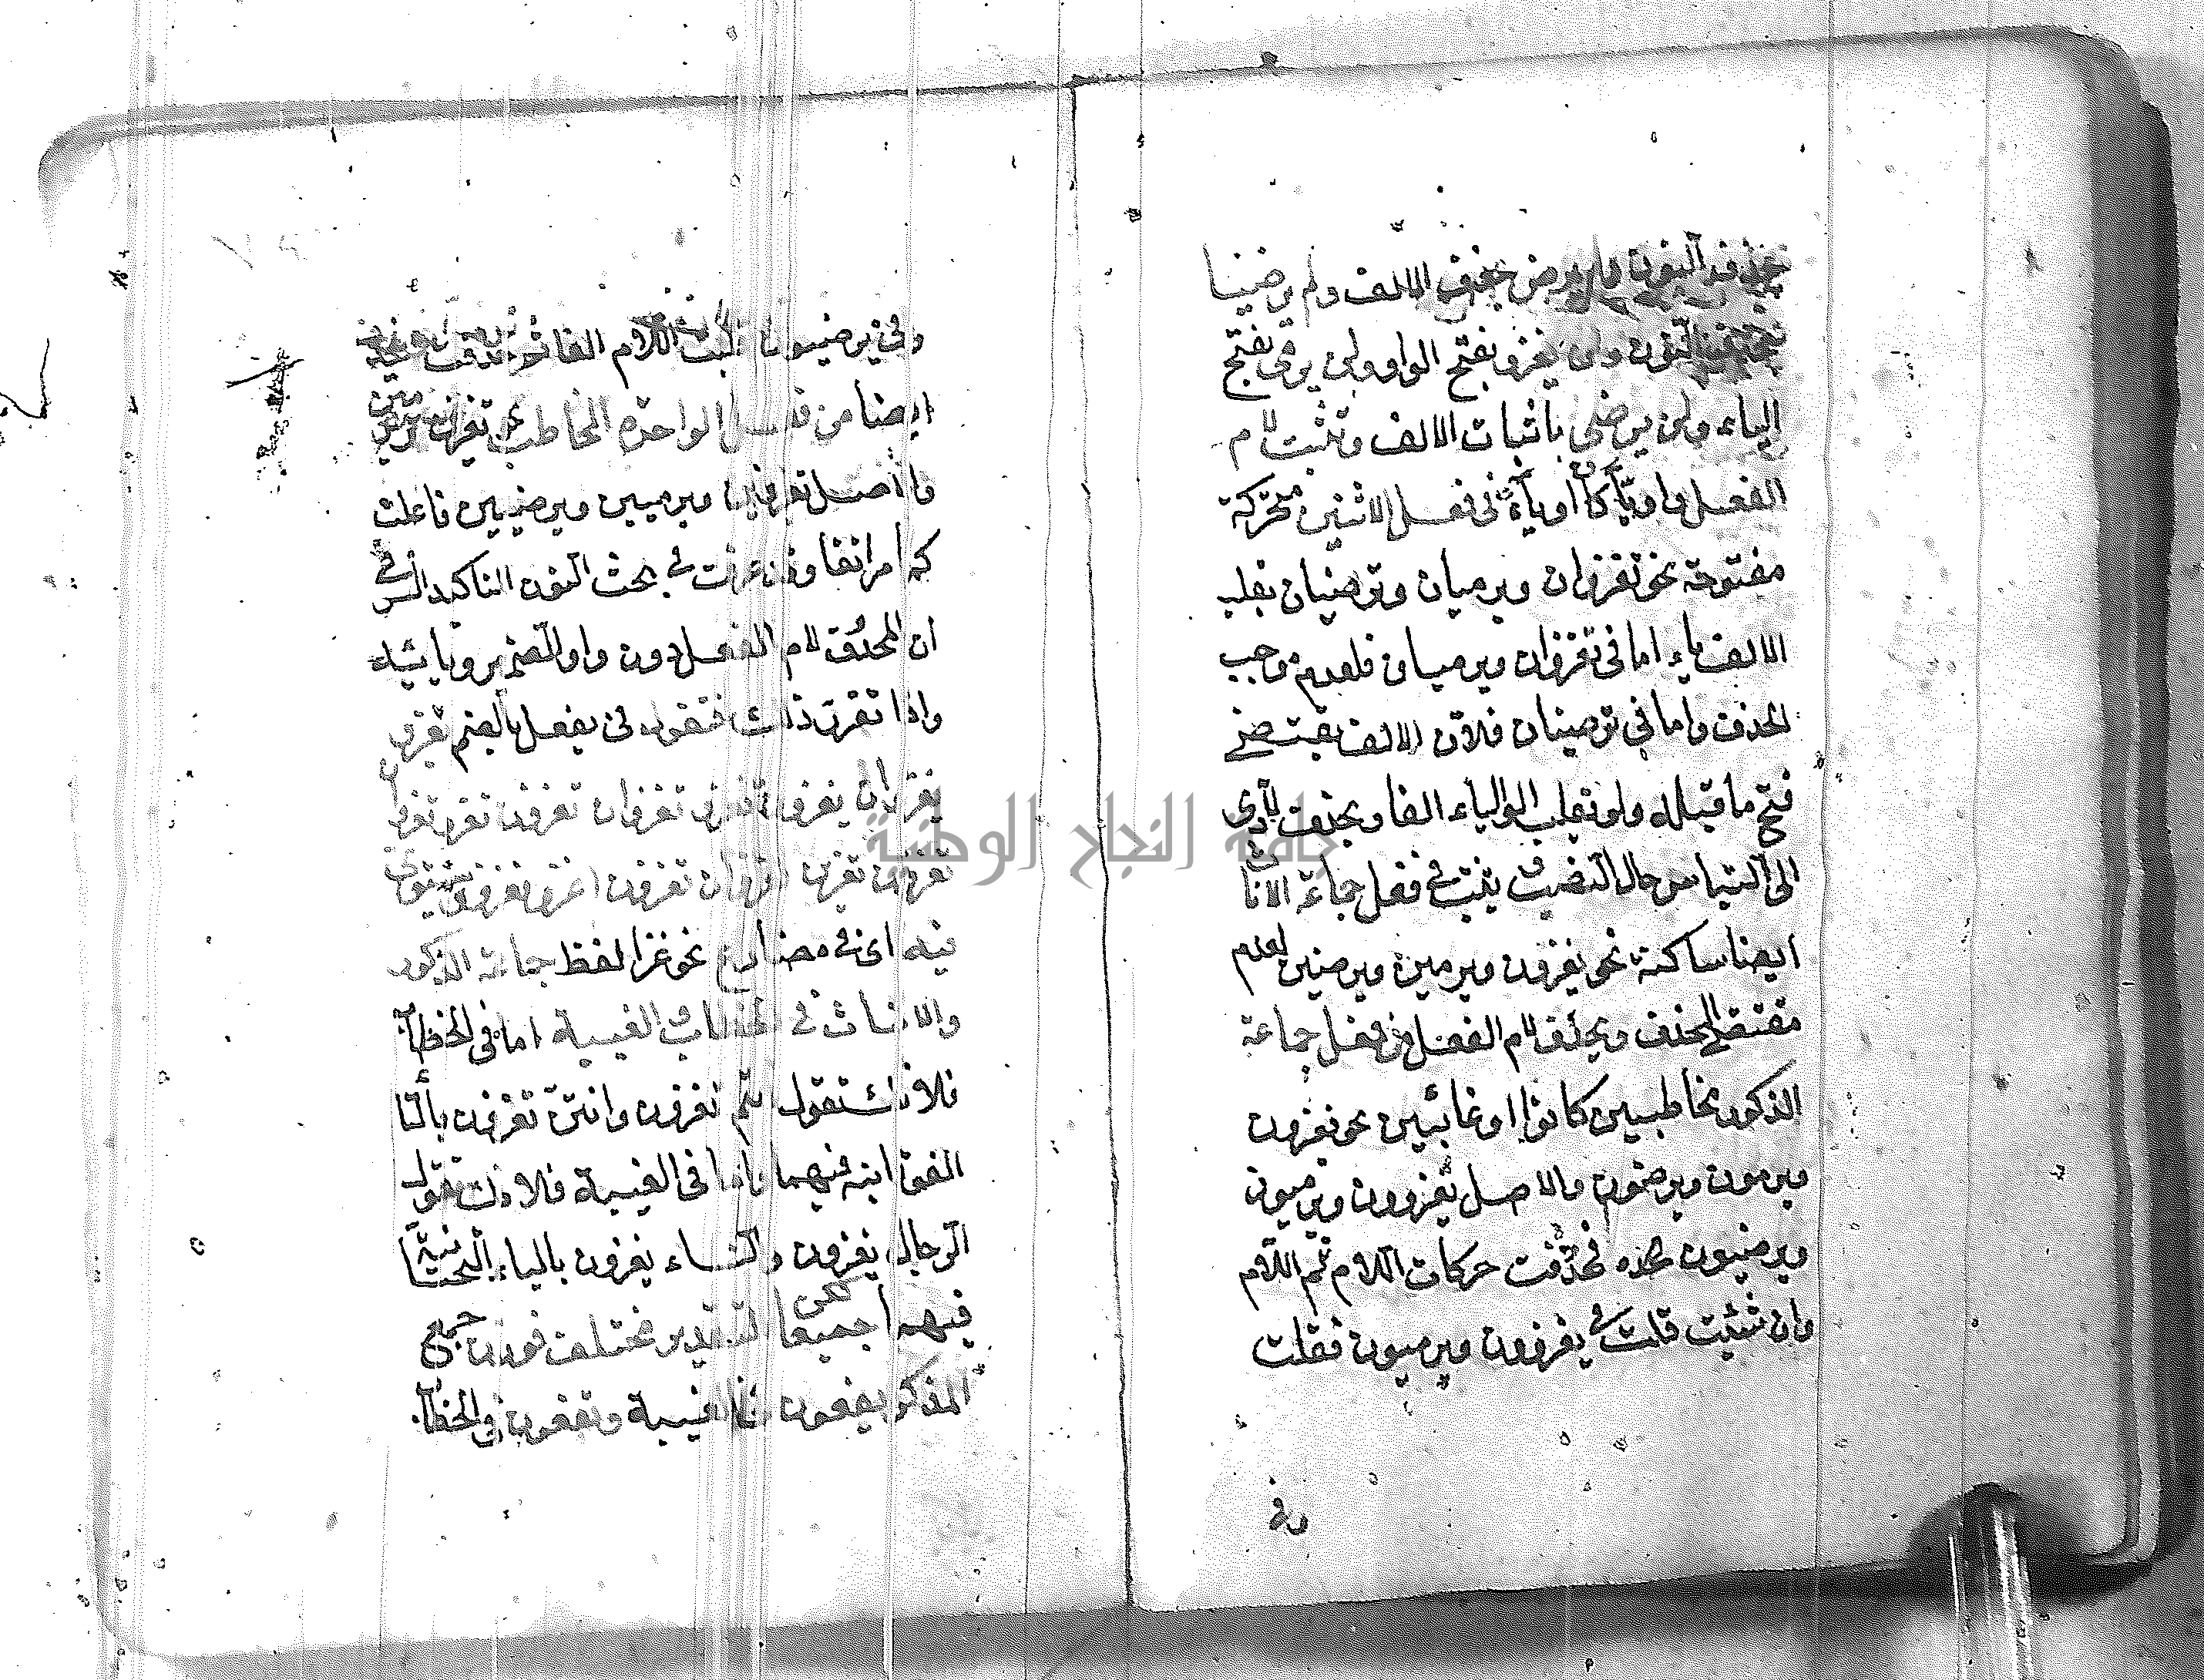 بحذف النون ولم يرض بحذف الالف ولم يرضيا
بحذف النون ولن يغزو بفتح الواو ولن يرمي بفتح
الياء ولن يرضى باثبات الالف وتثبت لام
الفعل واوا كان او ياء في فعل الاثنين متحركة
مفتوحة نحو تغزوان ويرميان وترضيان بقلب
الالف ياء اما في تغزوان ويرميان فلعدم موجب
الحذف واما في ترضيان فلان الالف
فتح ما قبله ولو تقلب الياء الفا ويحذف لادى
الى التباس حال النصب يثبت في فعل جماعة الاناث
ايضا ساكنة نحو يغزون ويرمين ويرضين لعدم
مقتضى الحذف ويحذف لام الفعل من فعل جماعة
الذكور مخاطبين كانوا او غائبين نحو يغزون
ويرمون ويرضون والاصل يغزوون ويرميون
ويرضيون فحذفت حركات اللام ثم اللام
وان شئت قلت في يغزوون ويرميون فقلت
وفي
وفي يرضيون قلبت اللام الفا ثم حذفت
ايضا من فعل الواحدة المخاطبة تغزين
واصل تغزوين ويرميين ويرضيين فاعلت
كما مر انفا وقد عرفت في بحث النون التاكيد السر في
ان المحذوف لام الفعل دون واو الضمير ويائه
واذا تقرر ذلك فتقول في يفعل بالضم يغزو
يغزوان يغزون تغزو تغزوان تغزون
تغزوان تغزون اغزو نغزو يستوى
فيه اى في مضارع نحو غزا لفظ جماعة الذكور
والاناث في الخطاب والغيبة اما في الخطاب
فلانك تقول انتم تغزون وانتن تغزون بالتاء
الفوقانية فيهما واما في الغيبة فلانك تقول
الرجال يغزون والنساء يغزون بالياء التحتانية
فيهما جميعا لكن التقدير مختلف فوزن جمع
المذكر يفعون في الغيبة وتفعون في الخطاب
جامعة النجاح الوطنية